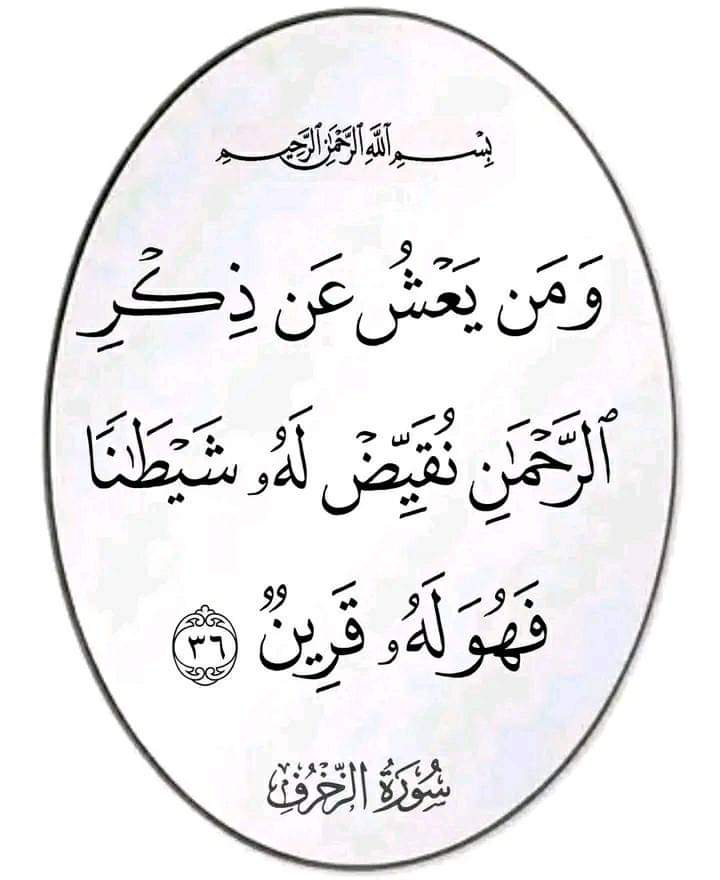 بِسْمِ ٱللَّهِ ٱلرَّحْمَٰنِ ٱلرَّحِيمِ
وَمَن يَعْشُ عَن ذِكْرِ
ٱلرَّحْمَٰنِ نُقَيِّضْ لَهُۥ شَيْطَٰنًا
فَهُوَ لَهُۥ قَرِينٌ ٣٦
سُورَةُ الزُّخْرُفِ